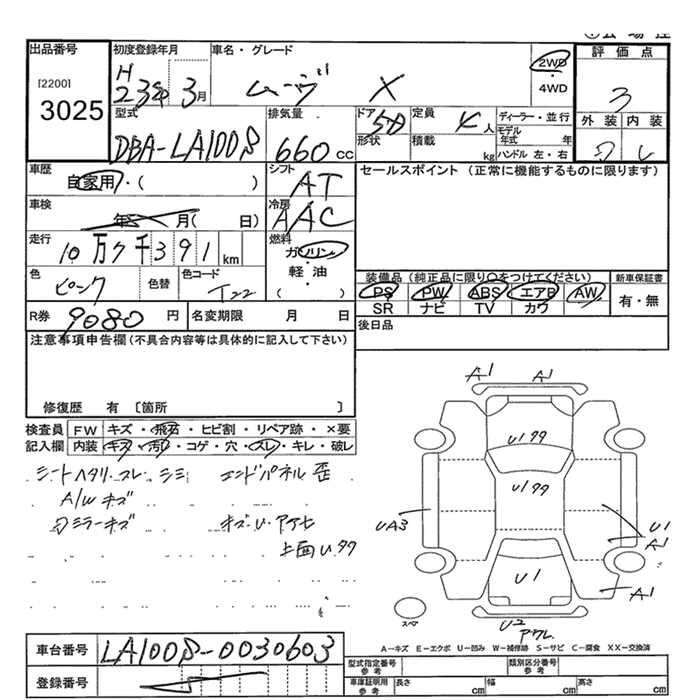 出品番号
[2200]
3025
初度登録年月
H
23年 3月
車名・グレード
ムーヴ X
2WD
・
4WD
評価点
3
外装 内装
型式
DBA-LA100S
排気量
660 cc
ドア 5D
形状
定員 人
積載 kg
ディーラー・並行
モデル年式 年
ハンドル 左・右
車歴
自家用・( )
シフト
AT
セールスポイント (正常に機能するものに限ります)
車検
年 月( 日)
冷房
AAC
走行
10万7千391 km
燃料
ガソリン
・
軽・油
( )
色
ピンク
色替
色コード
T22
装備品 (純正品に限り○をつけてください)
PS PW ABS エアB AW
SR ナビ TV カワ
新車保証書
有・無
R券 9080 円
名変期限 月 日
後日品
注意事項申告欄(不具合内容等は具体的に記入して下さい)
修復歴 有 〔箇所 〕
検査員 FW キズ・飛石・ヒビ割・リペア跡・×要
記入欄 内装 キズ・汚れ・コゲ・穴・スレ・キレ・破レ
シートヘタリ・スレ シミ エンドパネル歪
A/W キズ
ミラーキズ キズ・U・アケヒ
上面
A1 A1
U1
U1
UA3
U1
A1
U1
A1
U2
スペ
A－キズ E－エクボ U－凹み W－補修跡 S－サビ C－腐食 XX－交換済
車台番号 LA100S-0030603
登録番号
型式指定番号 参考
類別区分番号 参考
車庫証明用 参考 長さ cm 幅 cm 高さ cm